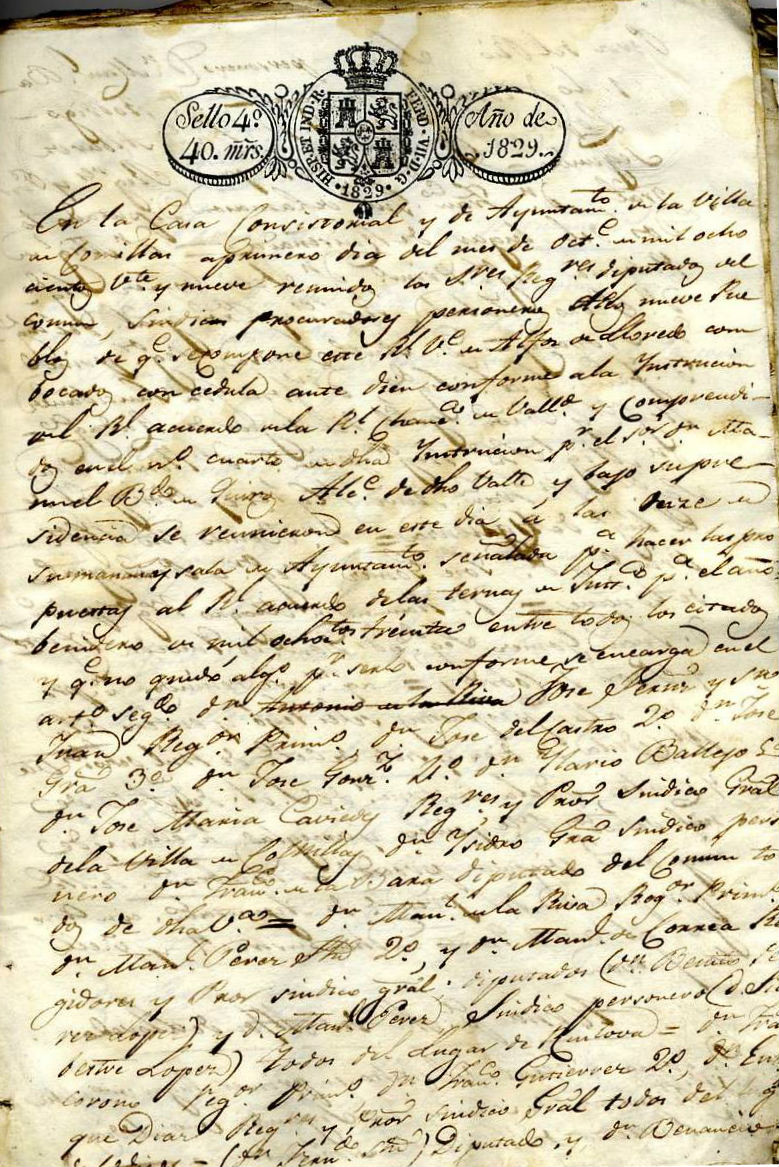 Sello 4º
40. mrs.
HISP. ET IND. R. FERD. VII. D. G.
·1829·
Año de
1829.
En la Casa Consistorial y de Ayuntamto. de la Villa
de Comillas aprimero dia del mes de Octe. de mil ocho
cientos vte. y nueve reunidos los Sres. Regres. diputados del
comun, Sindicos procuradores personeros delos nueve Pue
blos de qe. secompone este Rl. Ve. de Alfoz de Lloredo com
bocados con cedula ante diem conforme ala Instrucion
del Rl. acuerdo dela Rl. Chanca. de Valld. y Comprendi-
da en el nº. cuarto de dha Instrucion pr. el Sor. Dn.
Alce. de dho Valle y bajo su pre
sidencia se reunieron en este dia á las de
su mañana y sala de Ayuntamto. señalada pa. hacer las pro
puestas al Rl. acuerdo de las ternas de Justa. pa. el año
benidero de mil ochotos. treinta entre todos los citados
y qe. no quedó algo. pr. serlo conforme se encarga en el
arto. segdo. Dn. Antonio de la Riva Jose Fernz. y Sn.
Juan Regor. Primo. Dn. Jose del Castro 2º. Dn. Jose
Gra 3º. Dn. Jose Gonz. 4º. Dn. Ilario Ballejo
Dn. Jose Maria Caviedes Regres. y Pror. Sindico Gral
dela Villa de Comillas Dn. Ysidro Gra Sindico perso
nero Dn. Franco. de la Bara diputado del Comun to
dos de dha Va. = Dn. Manl. de la Riva Regor. Primo.
Dn. Manl. Perez 2º, y Dn. Manl. de Correa Re
gidores y Pror sindico gral. diputados (Dn. Benito Pe
rez Lopez) y D. Manl. Perez Sindico personero (D. Sil
bestre Lopez) todos del Lugar de = Dn. Fran
corono Regor. Primo. Dn. Franco. Gutierrez 2º, Dn. Enri
que Diaz Regres. y Pror sindico Gral todos del lug
(Dn. Ferndo.) Diputado y Dn. Benancio